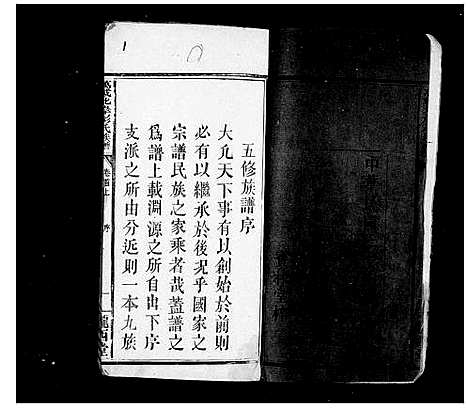 五修族譜序
大凡天下事有以創始於前則
必有以繼承於後況乎國家之
宗譜民族之家乘者哉蓋譜之
為譜上載淵源之所自由下序
支派之所由分近則一本九族
卷首上
序
一
隴西堂
1
中